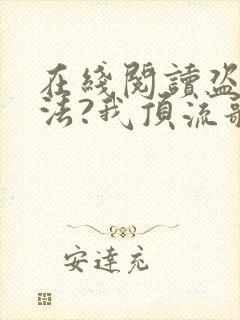 在綫閱讀盜
法?我頂流歌
安達充